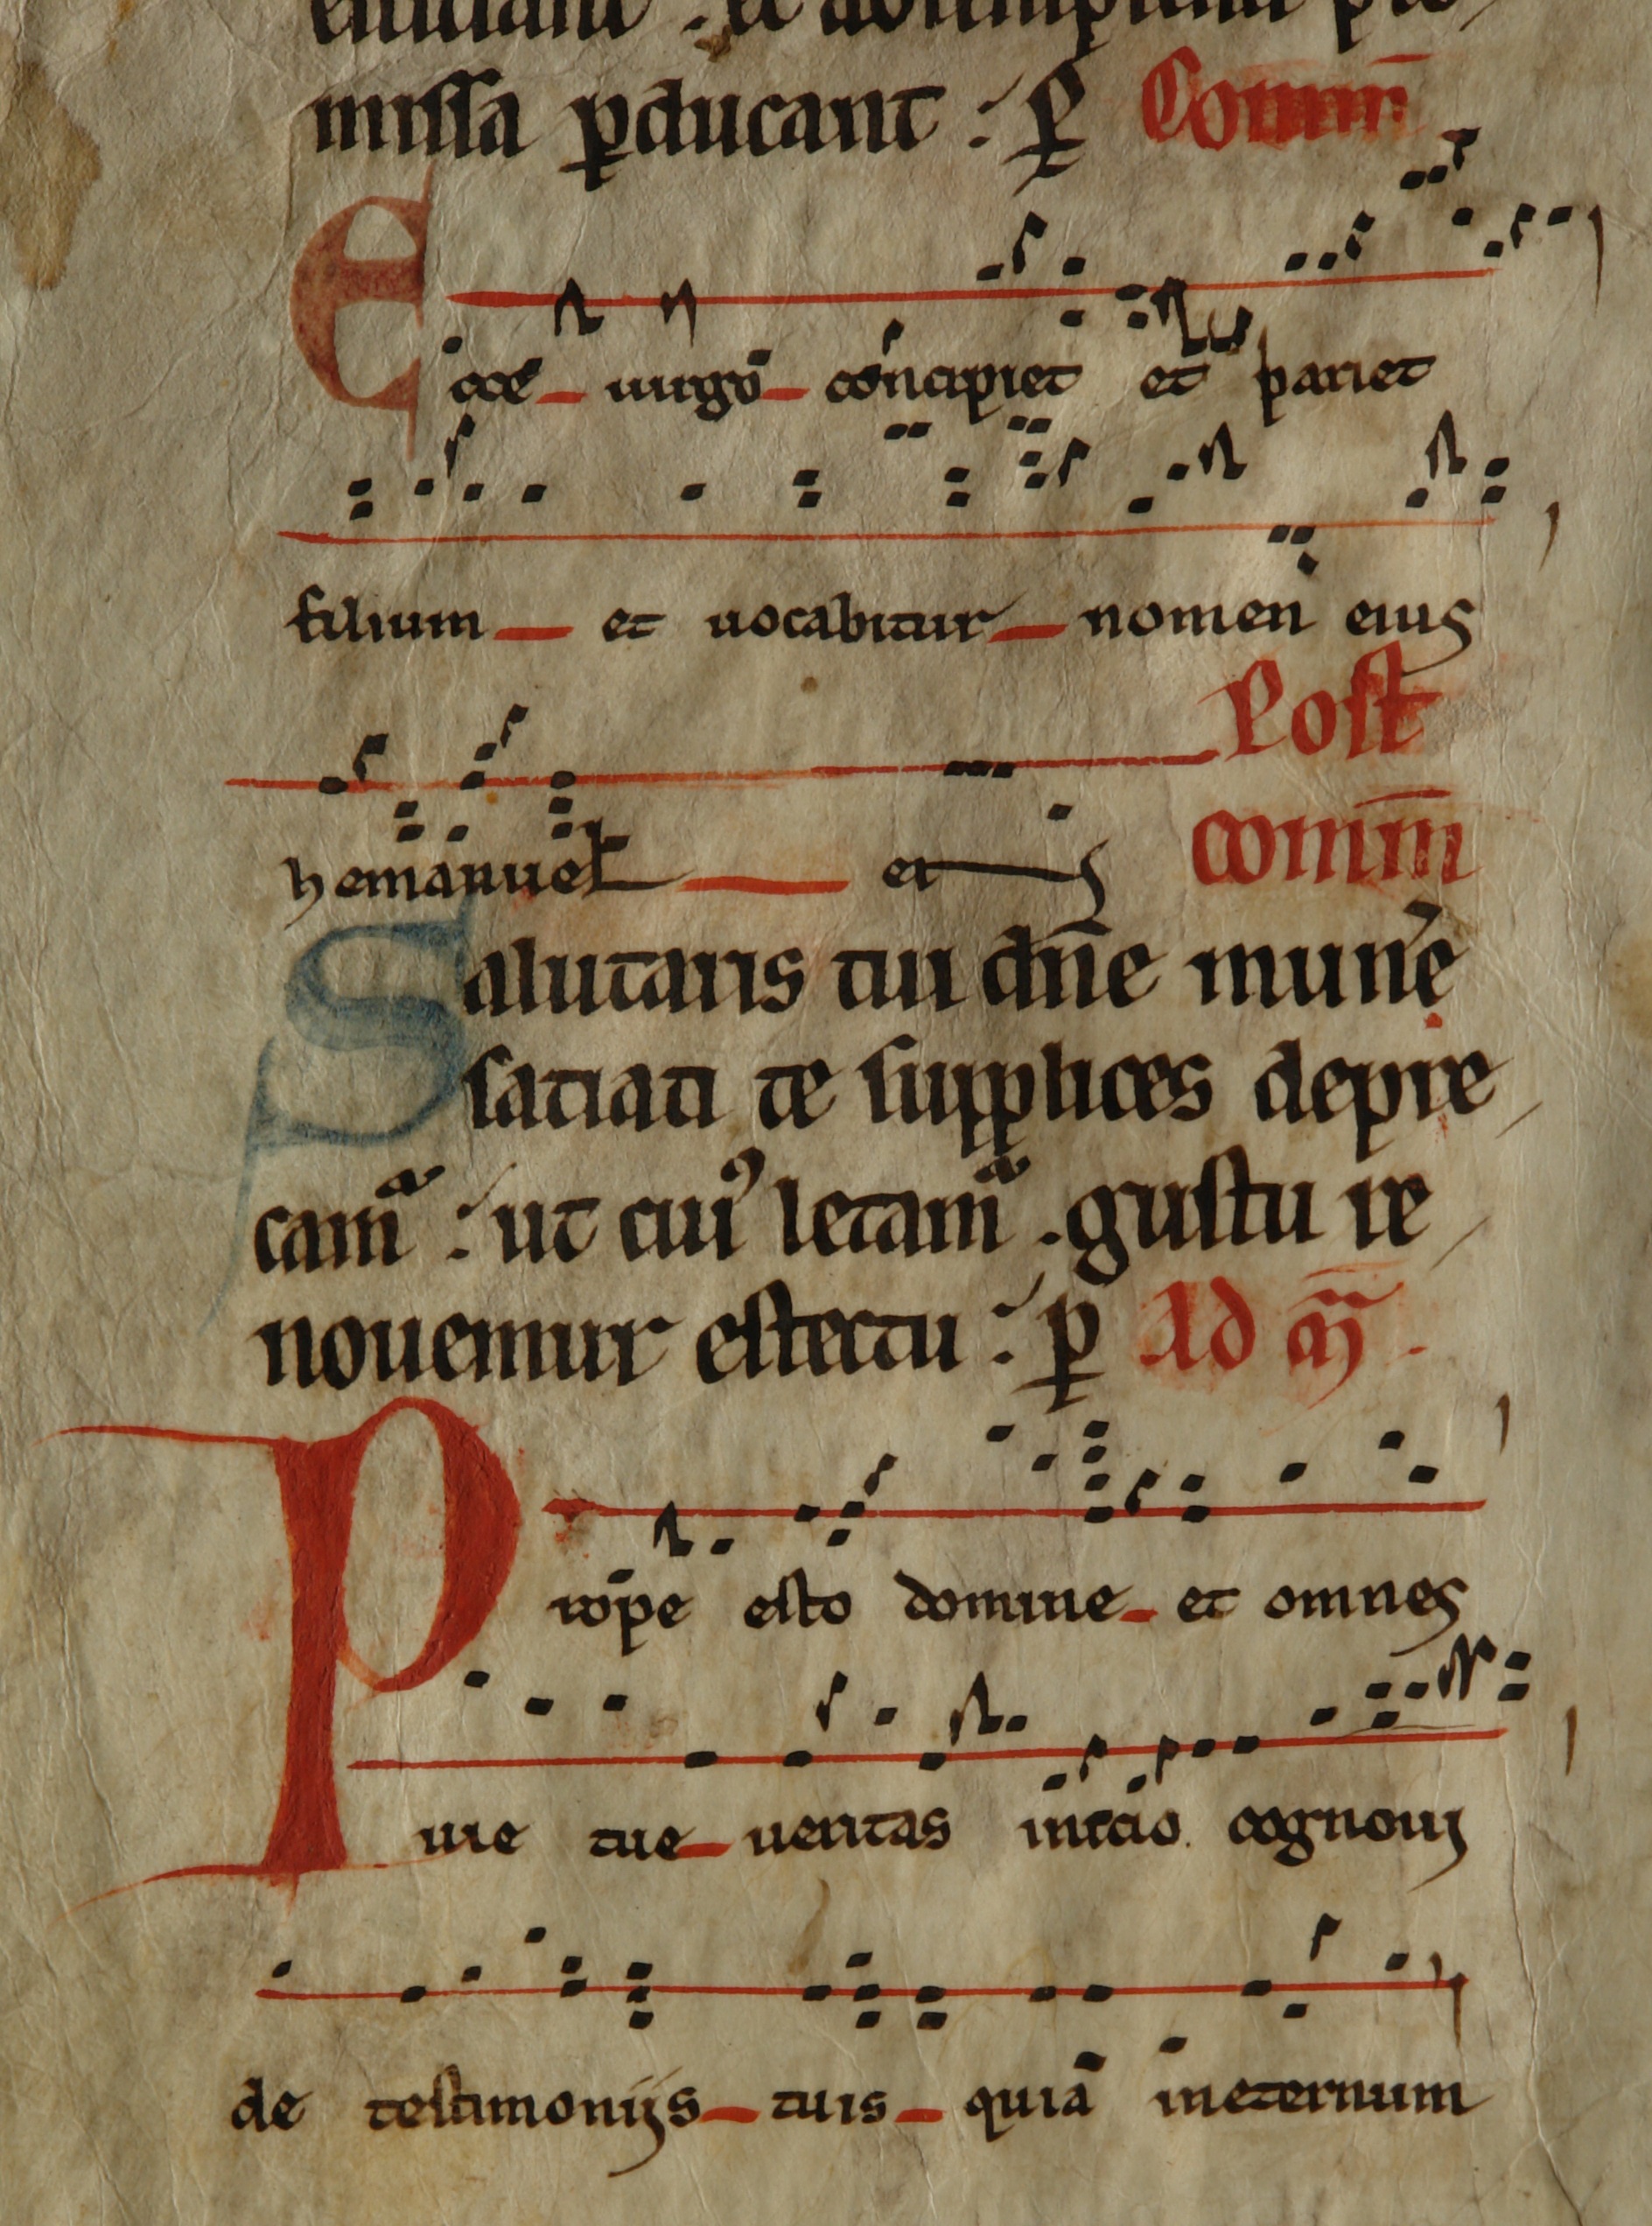 missa ꝑducant : ꝑ Comm̄
Ecce uirgo concipiet et pariet
filium et uocabitur nomen eius
hemanuel et Post
comm̄
Salutaris tui dn̄e mune
satiati te supplices depre
camᷓ : ut cuiꝰ letamᷓ . gustu re
nouemur effectu : ꝑ Ad
Prope esto domine et omnes
uie tue ueritas inicio cognoui
de testimonijs tuis quia ineternum